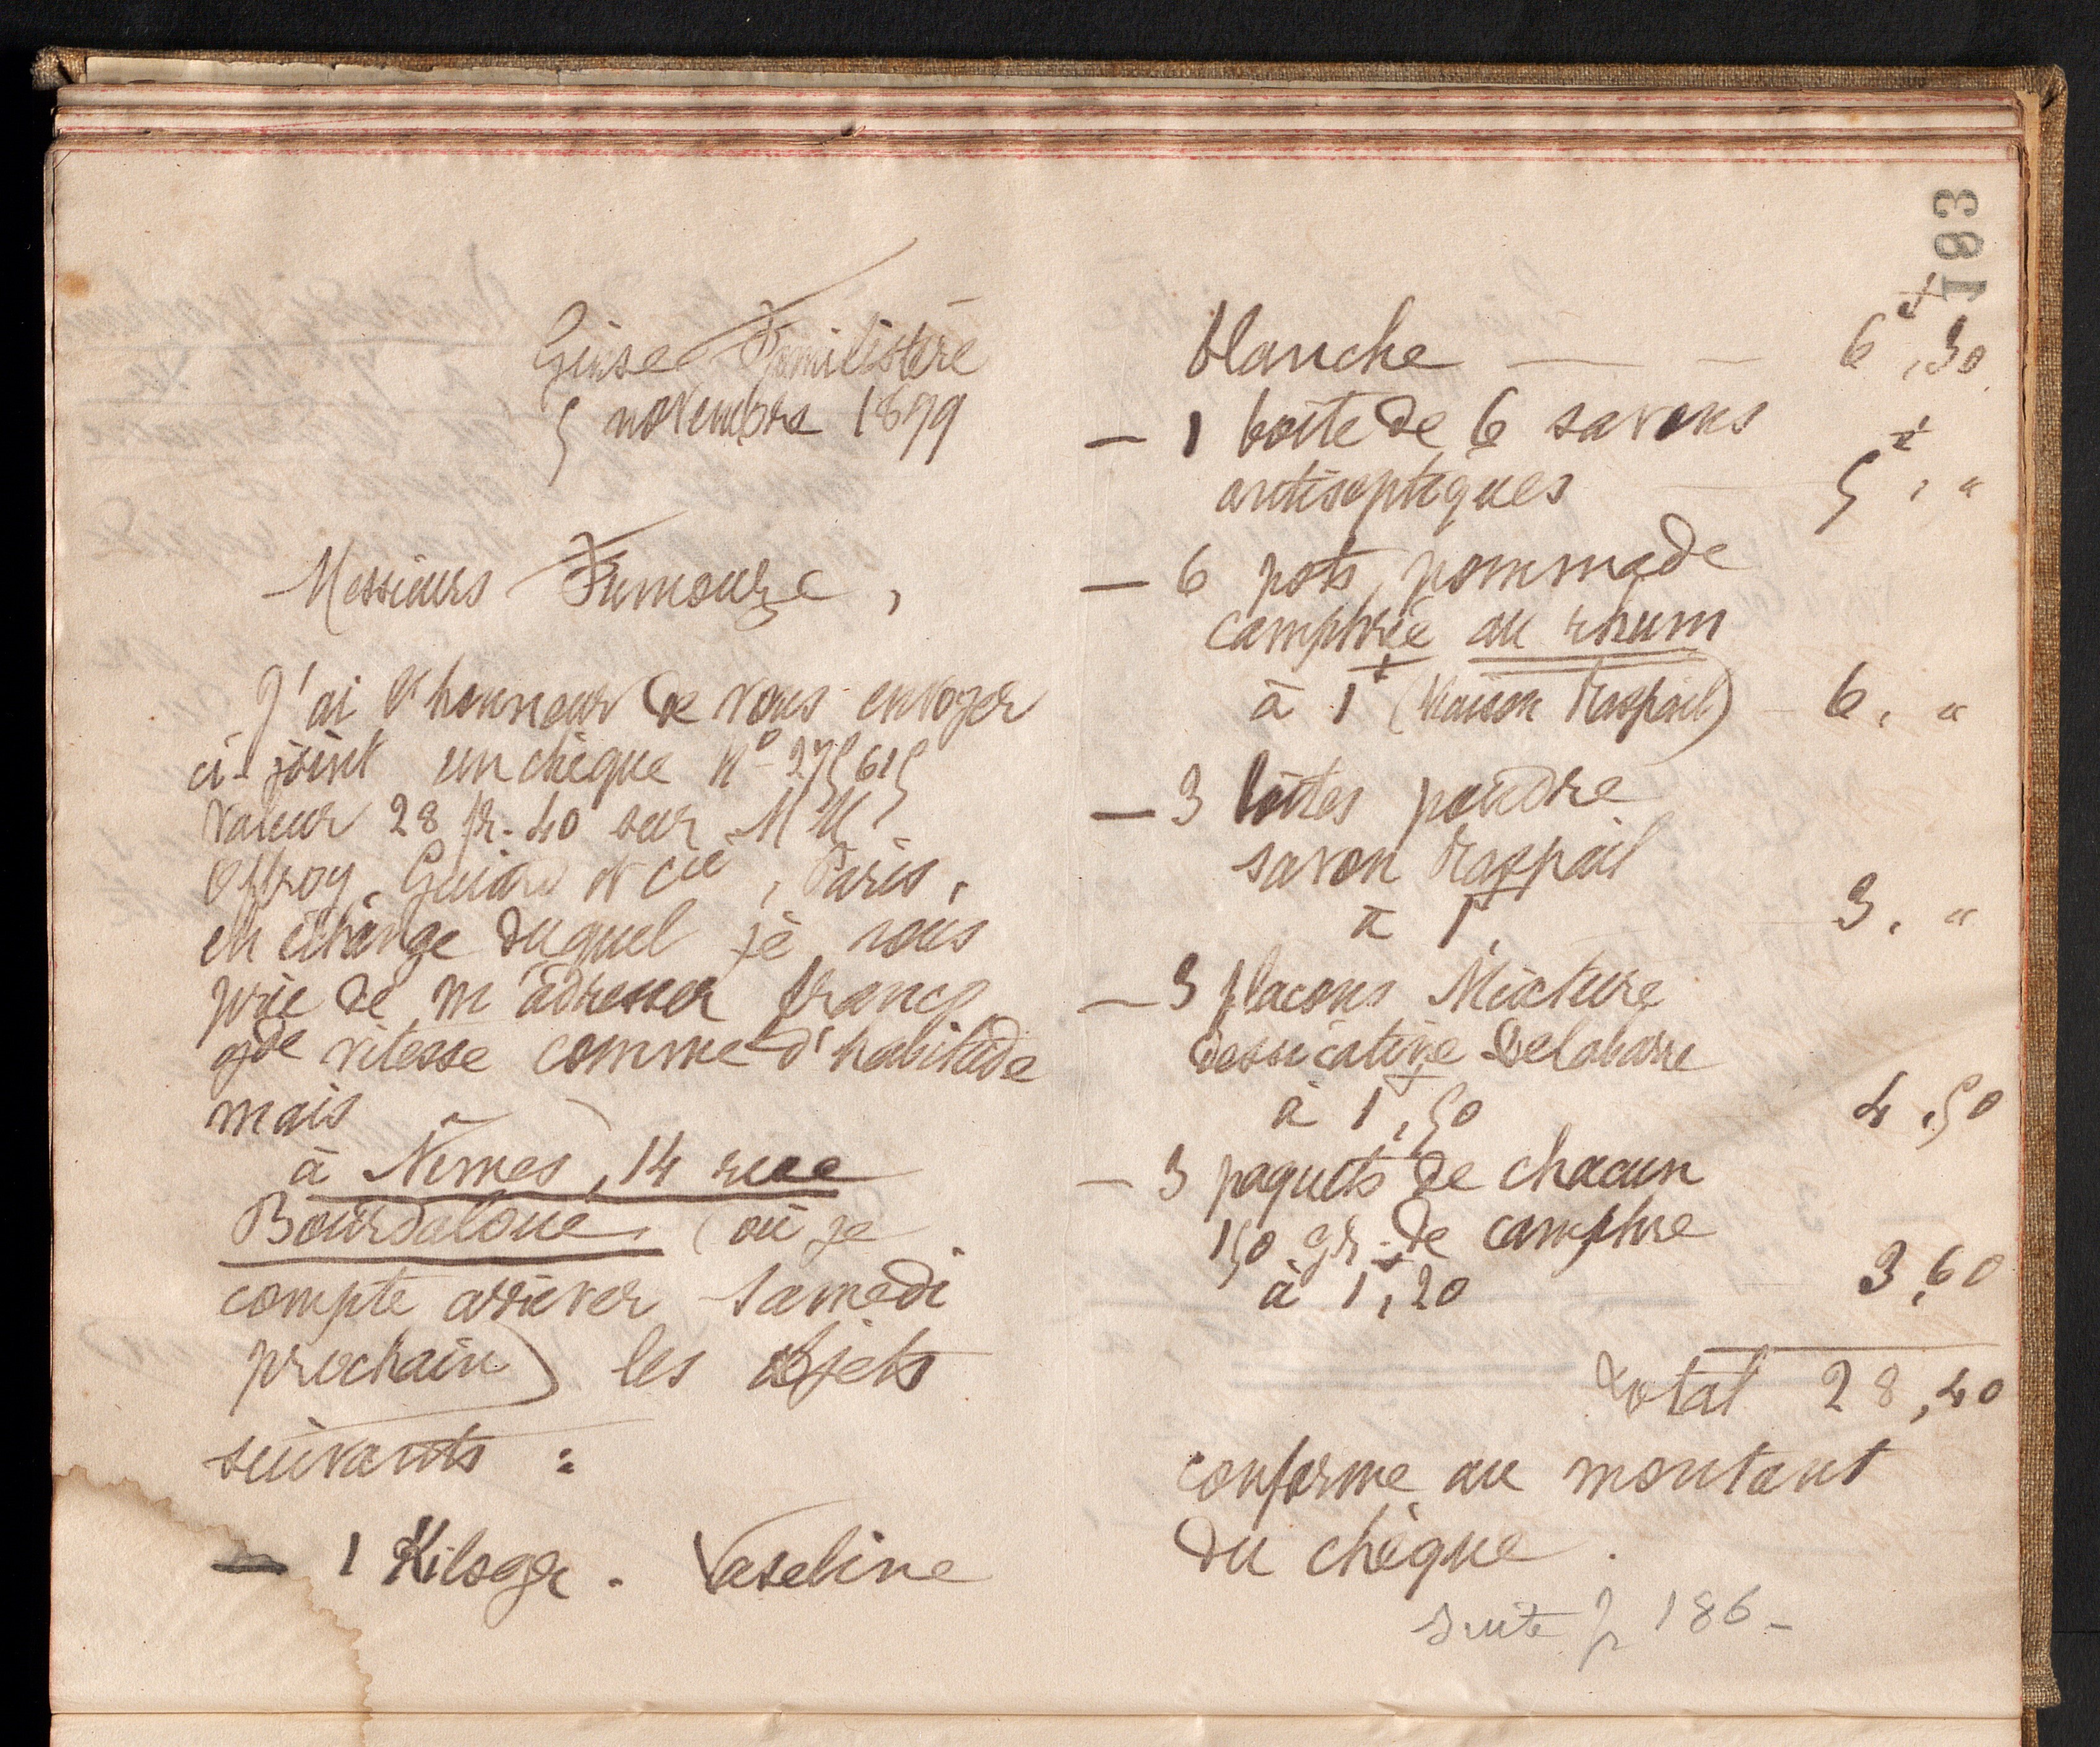 Guise Familistère
5 novembre 1899
Messieurs Fumouze,
J'ai l'honneur de vous envoyer
ci-joint un chèque No 275615
valeur 28 fr. 40 sur MM.
Offroy, Guiard et Cie, Paris,
en échange duquel je vous
prie de m'adresser franco
gde vitesse comme d'habitude
mais
à Nîmes, 14 rue
Bourdaloue, (où je
compte arriver samedi
prochain) les objets
suivants :
— 1 Kilogr. Vaseline
183
blanche — — 6f,30
— 1 boîte de 6 savons
antiseptiques 5f, "
— 6 pots pommade
camphrée au rhum
à 1f (Maison Raspail) 6, "
— 3 boîtes poudre
savon Raspail
à 1f 3, "
— 3 flacons Mixture
dessicative Delabarre
à 1f,50 4,50
— 3 paquets de chacun
150 gr. de camphre
à 1f,20 3,60
Total 28,40
conforme au montant
du chèque.
suite p 186 -